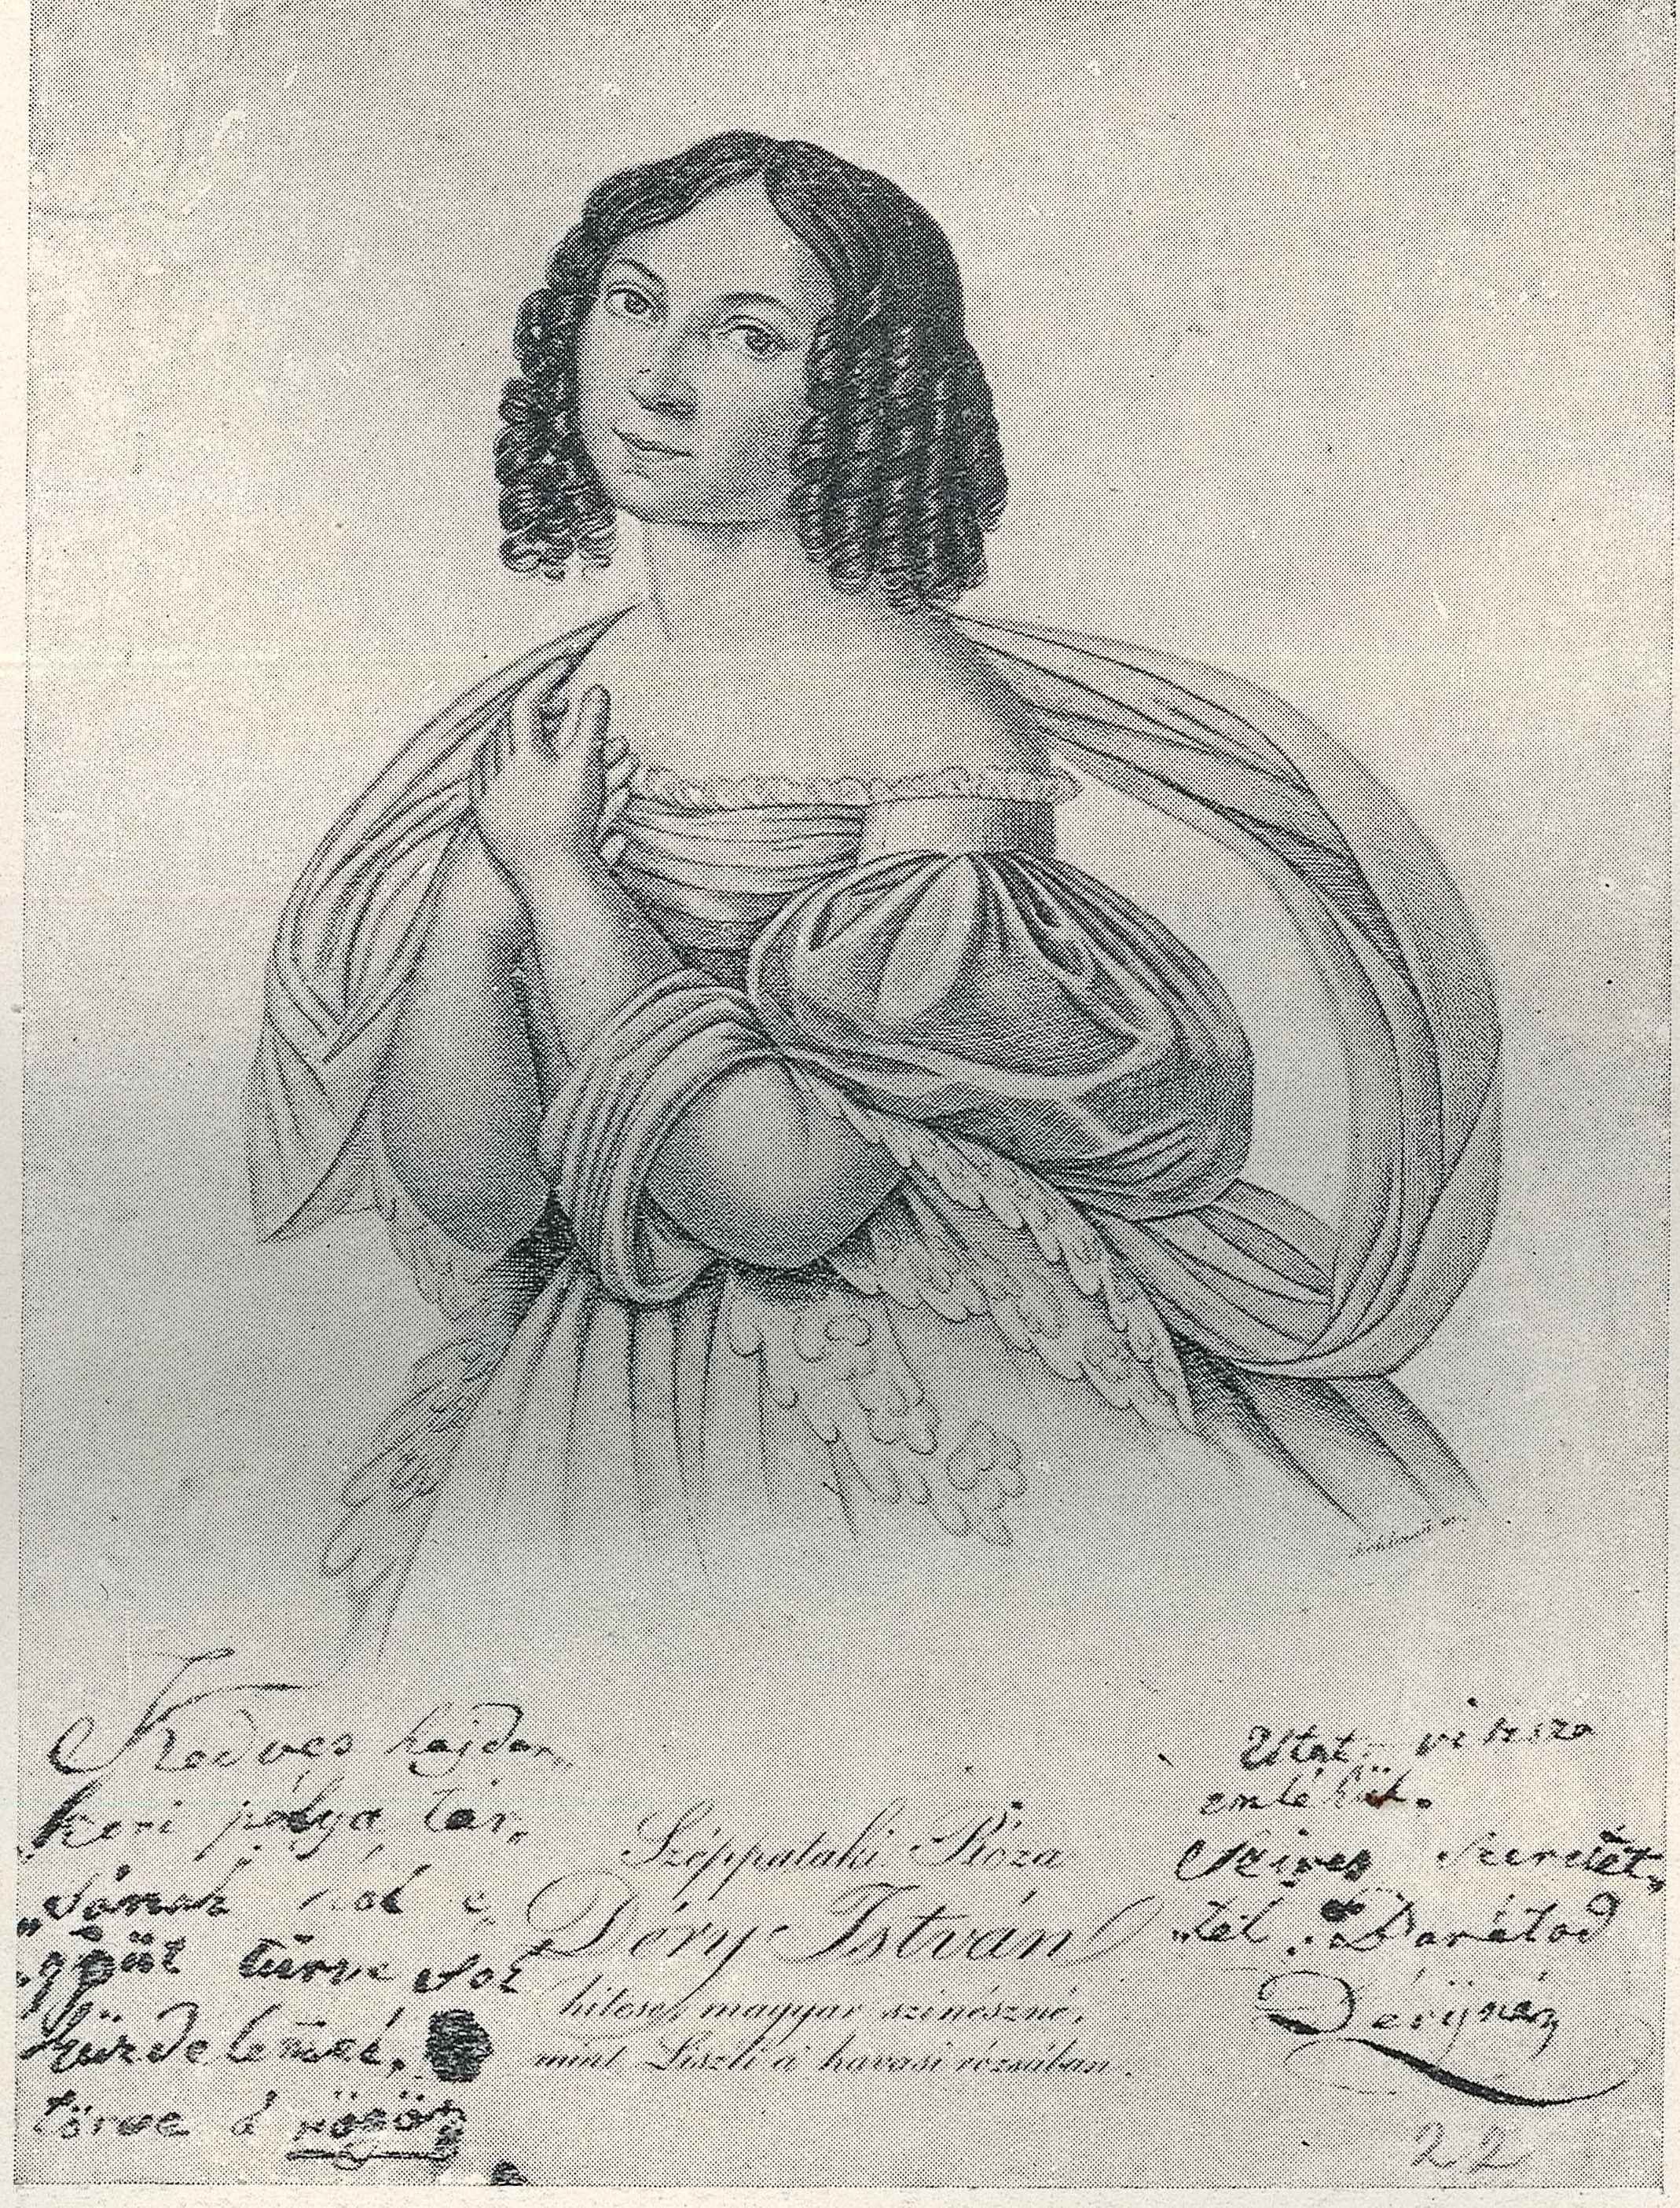 Kedves hajdan
kori pálya tár„
„sának hol e„
„gyüt türve sok
küzdelmei,
törve a rögöt
Széppataki Róza
Déry István
hitese, magyar szinésznő,
mint Liszli a havasi rózsában.
vissza
emlékűl.
Szíves szeretet„
„tel Barátod
Déryné
22